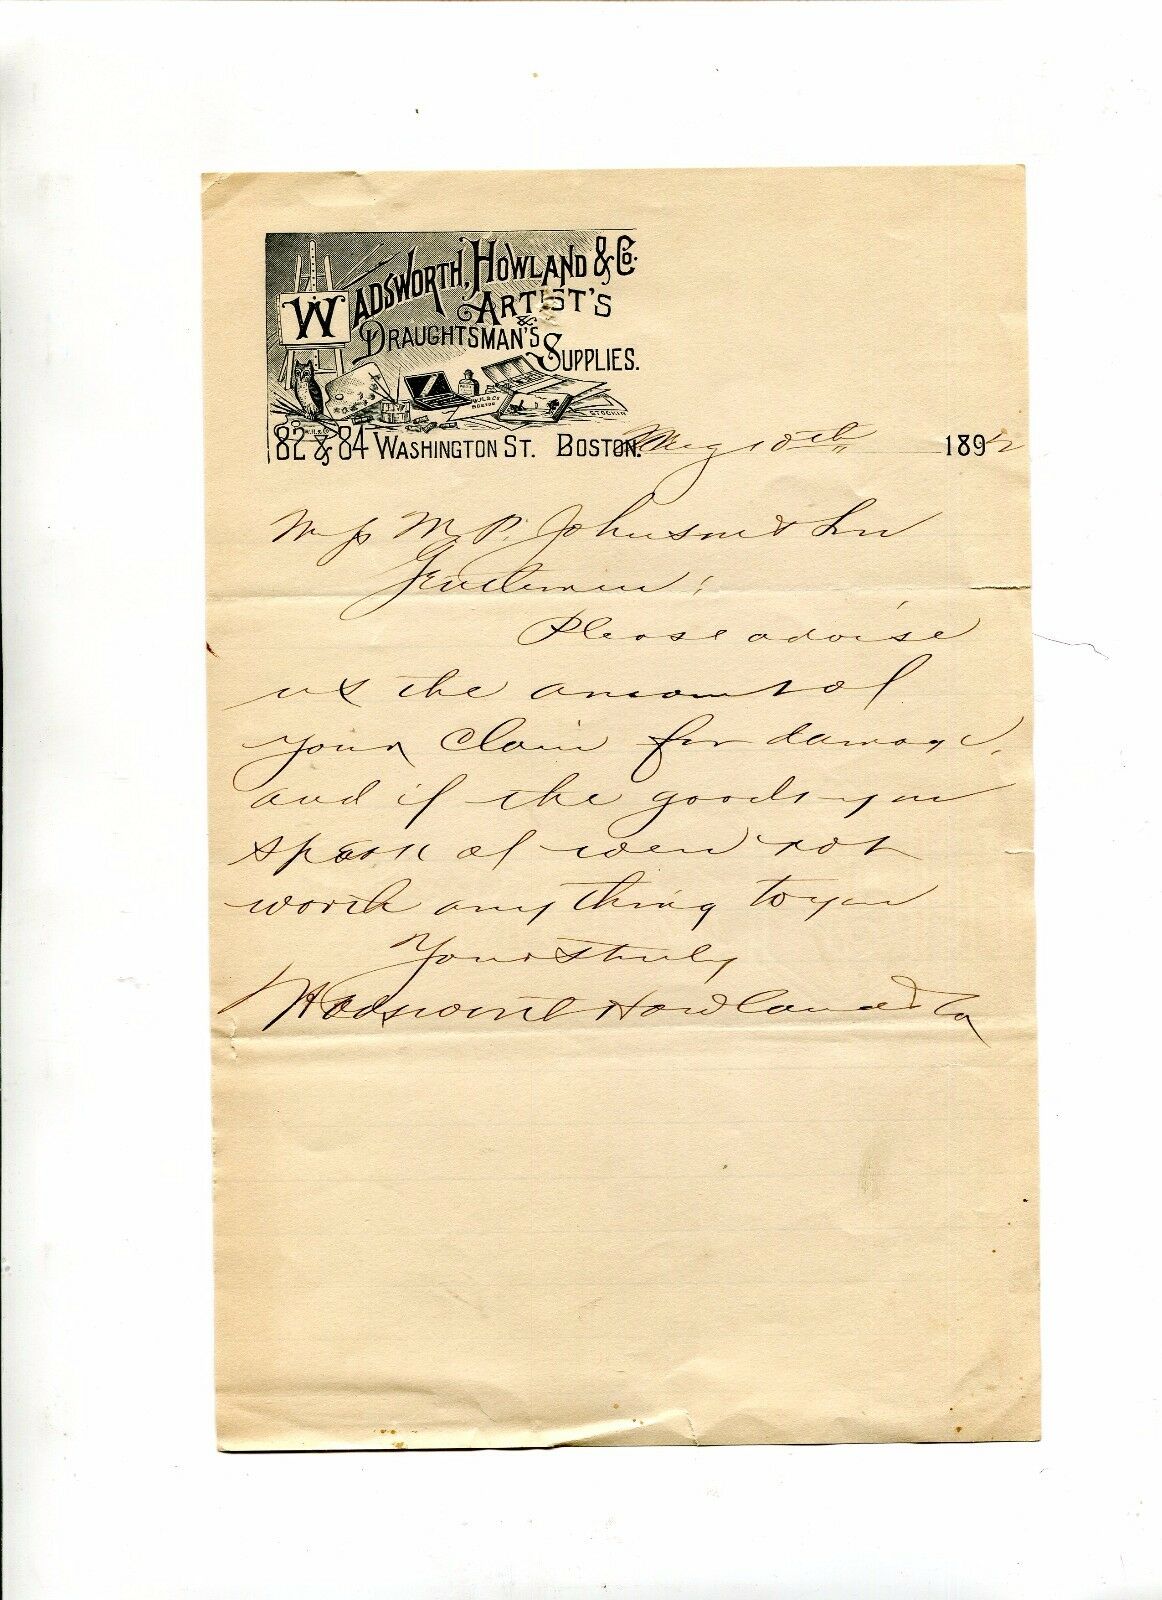 WADSWORTH, HOWLAND & CO.
ARTIST'S
&
DRAUGHTSMAN'S
SUPPLIES.
W.H.& CO
BOSTON
STOCKIN
W.H.& CO
82 & 84 WASHINGTON ST. BOSTON. May 10th 1892
M. P. Johnson & Son
Gentlemen:
Please advise
us the amount of
your claim for damage,
and if the goods you
speak of were not
worth anything to you
Yours truly
Wadsworth Howland & Co